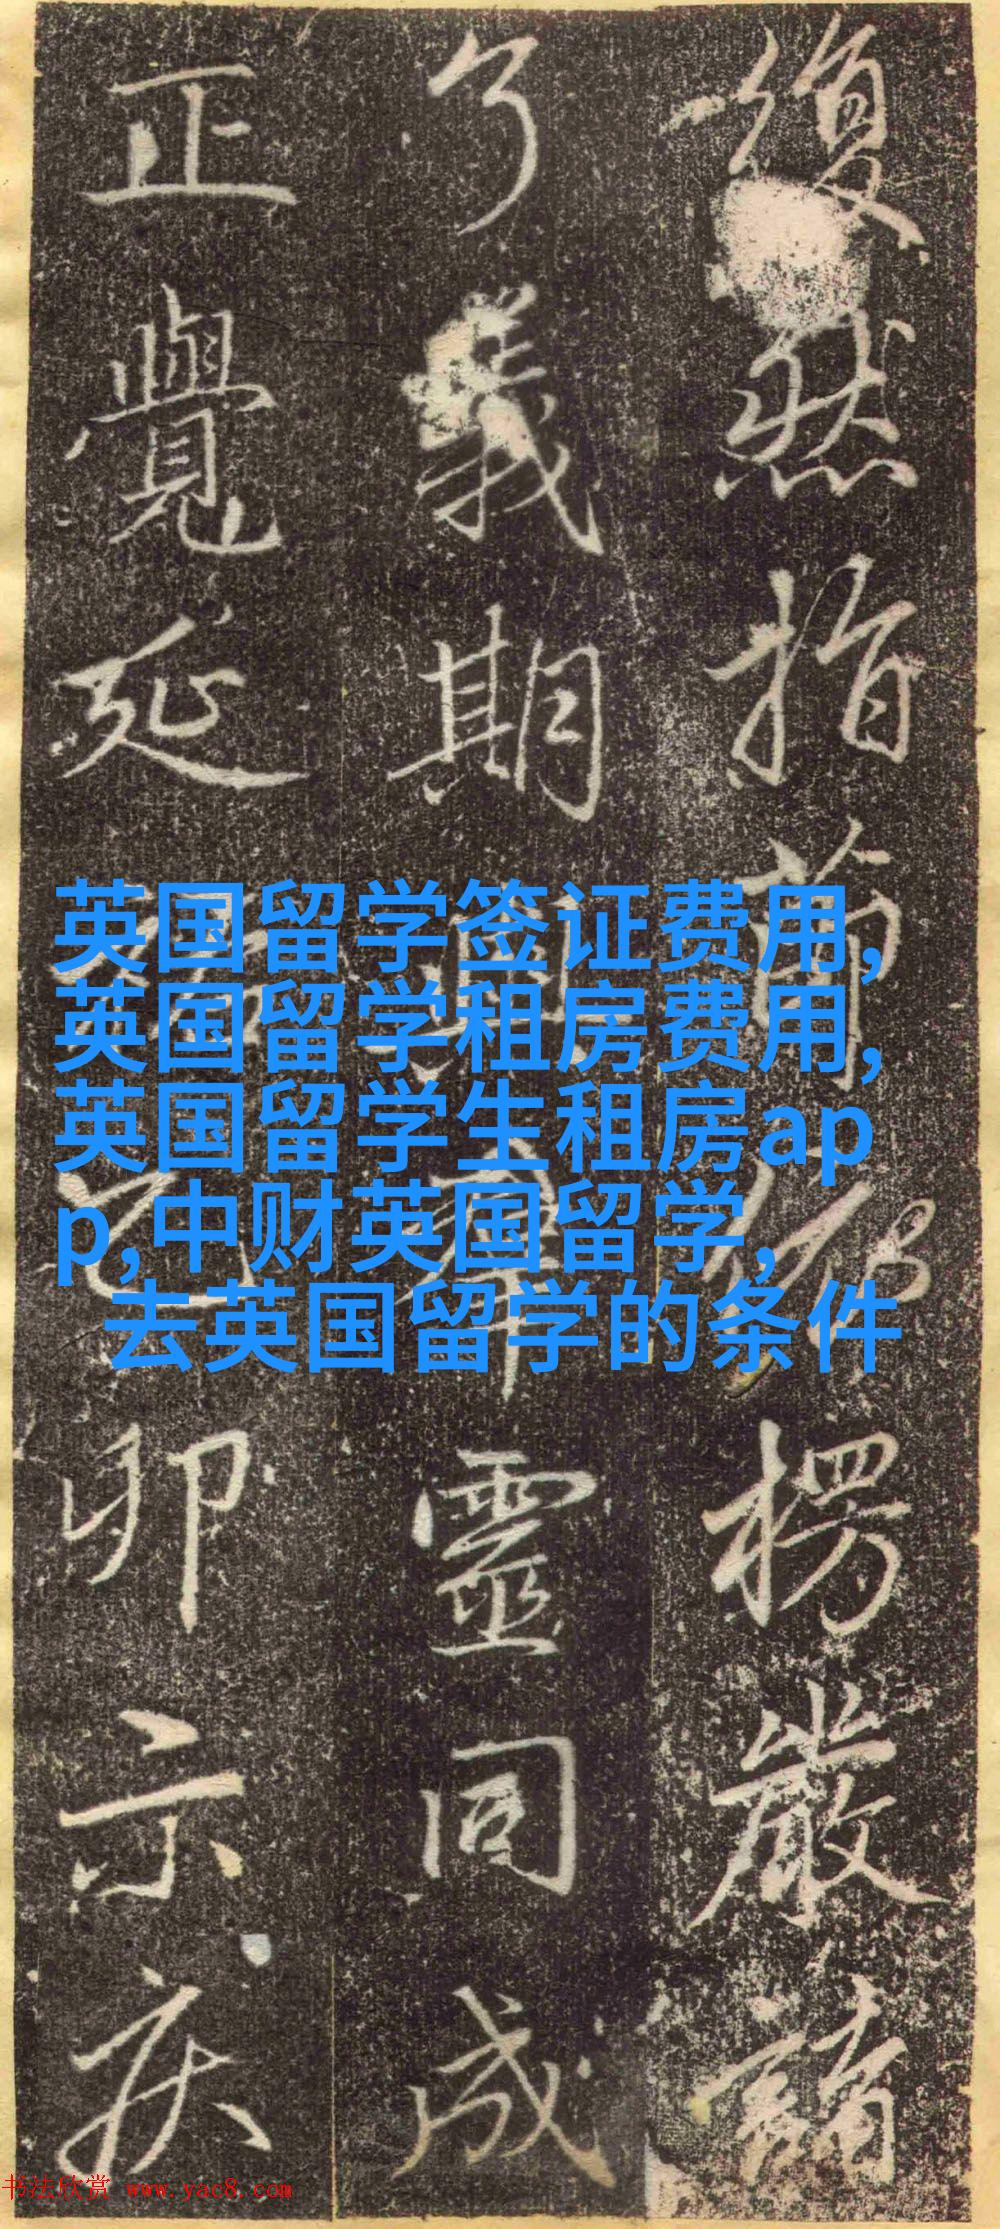 復然指首仰楞嚴請
了義期與羣靈同成
正覺延祐己卯示疾
英国留学签证费用,
英国留学租房费用,
英国留学生租房ap
p,中财英国留学,
去英国留学的条件
书法欣赏 www.yac8.com